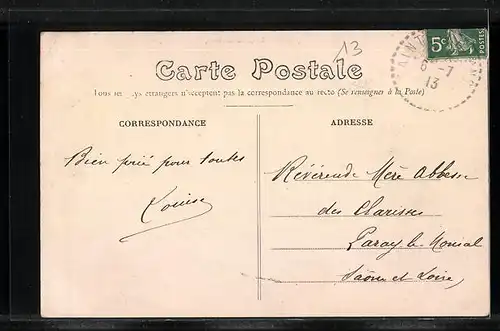 13
5c
POSTES
6 - 7
13
Carte Postale
Tous les pays étrangers n'acceptent pas la correspondance au recto (Se renseigner à la Poste)
CORRESPONDANCE
ADRESSE
Bien prié pour toutes
Louise
Révérende Mère Abbesse
des Clarisses
Paray le Monial
Saône et Loire